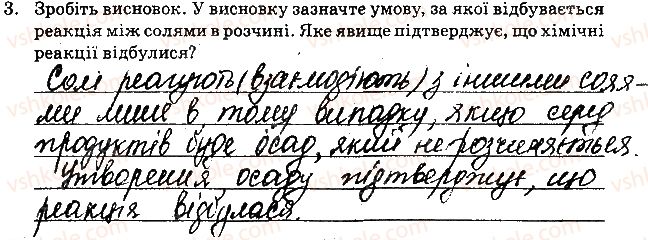 3. Зробіть висновок. У висновку зазначте умову, за якої відбувається
реакція між солями в розчині. Яке явище підтверджує, що хімічні
реакції відбулися?
Солі реагують (взаємодіють) з іншими соля-
ми лише в тому випадку, якщо серед
продуктів буде осад, який не розчиняється.
Утворення осаду підтверджує, що
реакція відбулася.